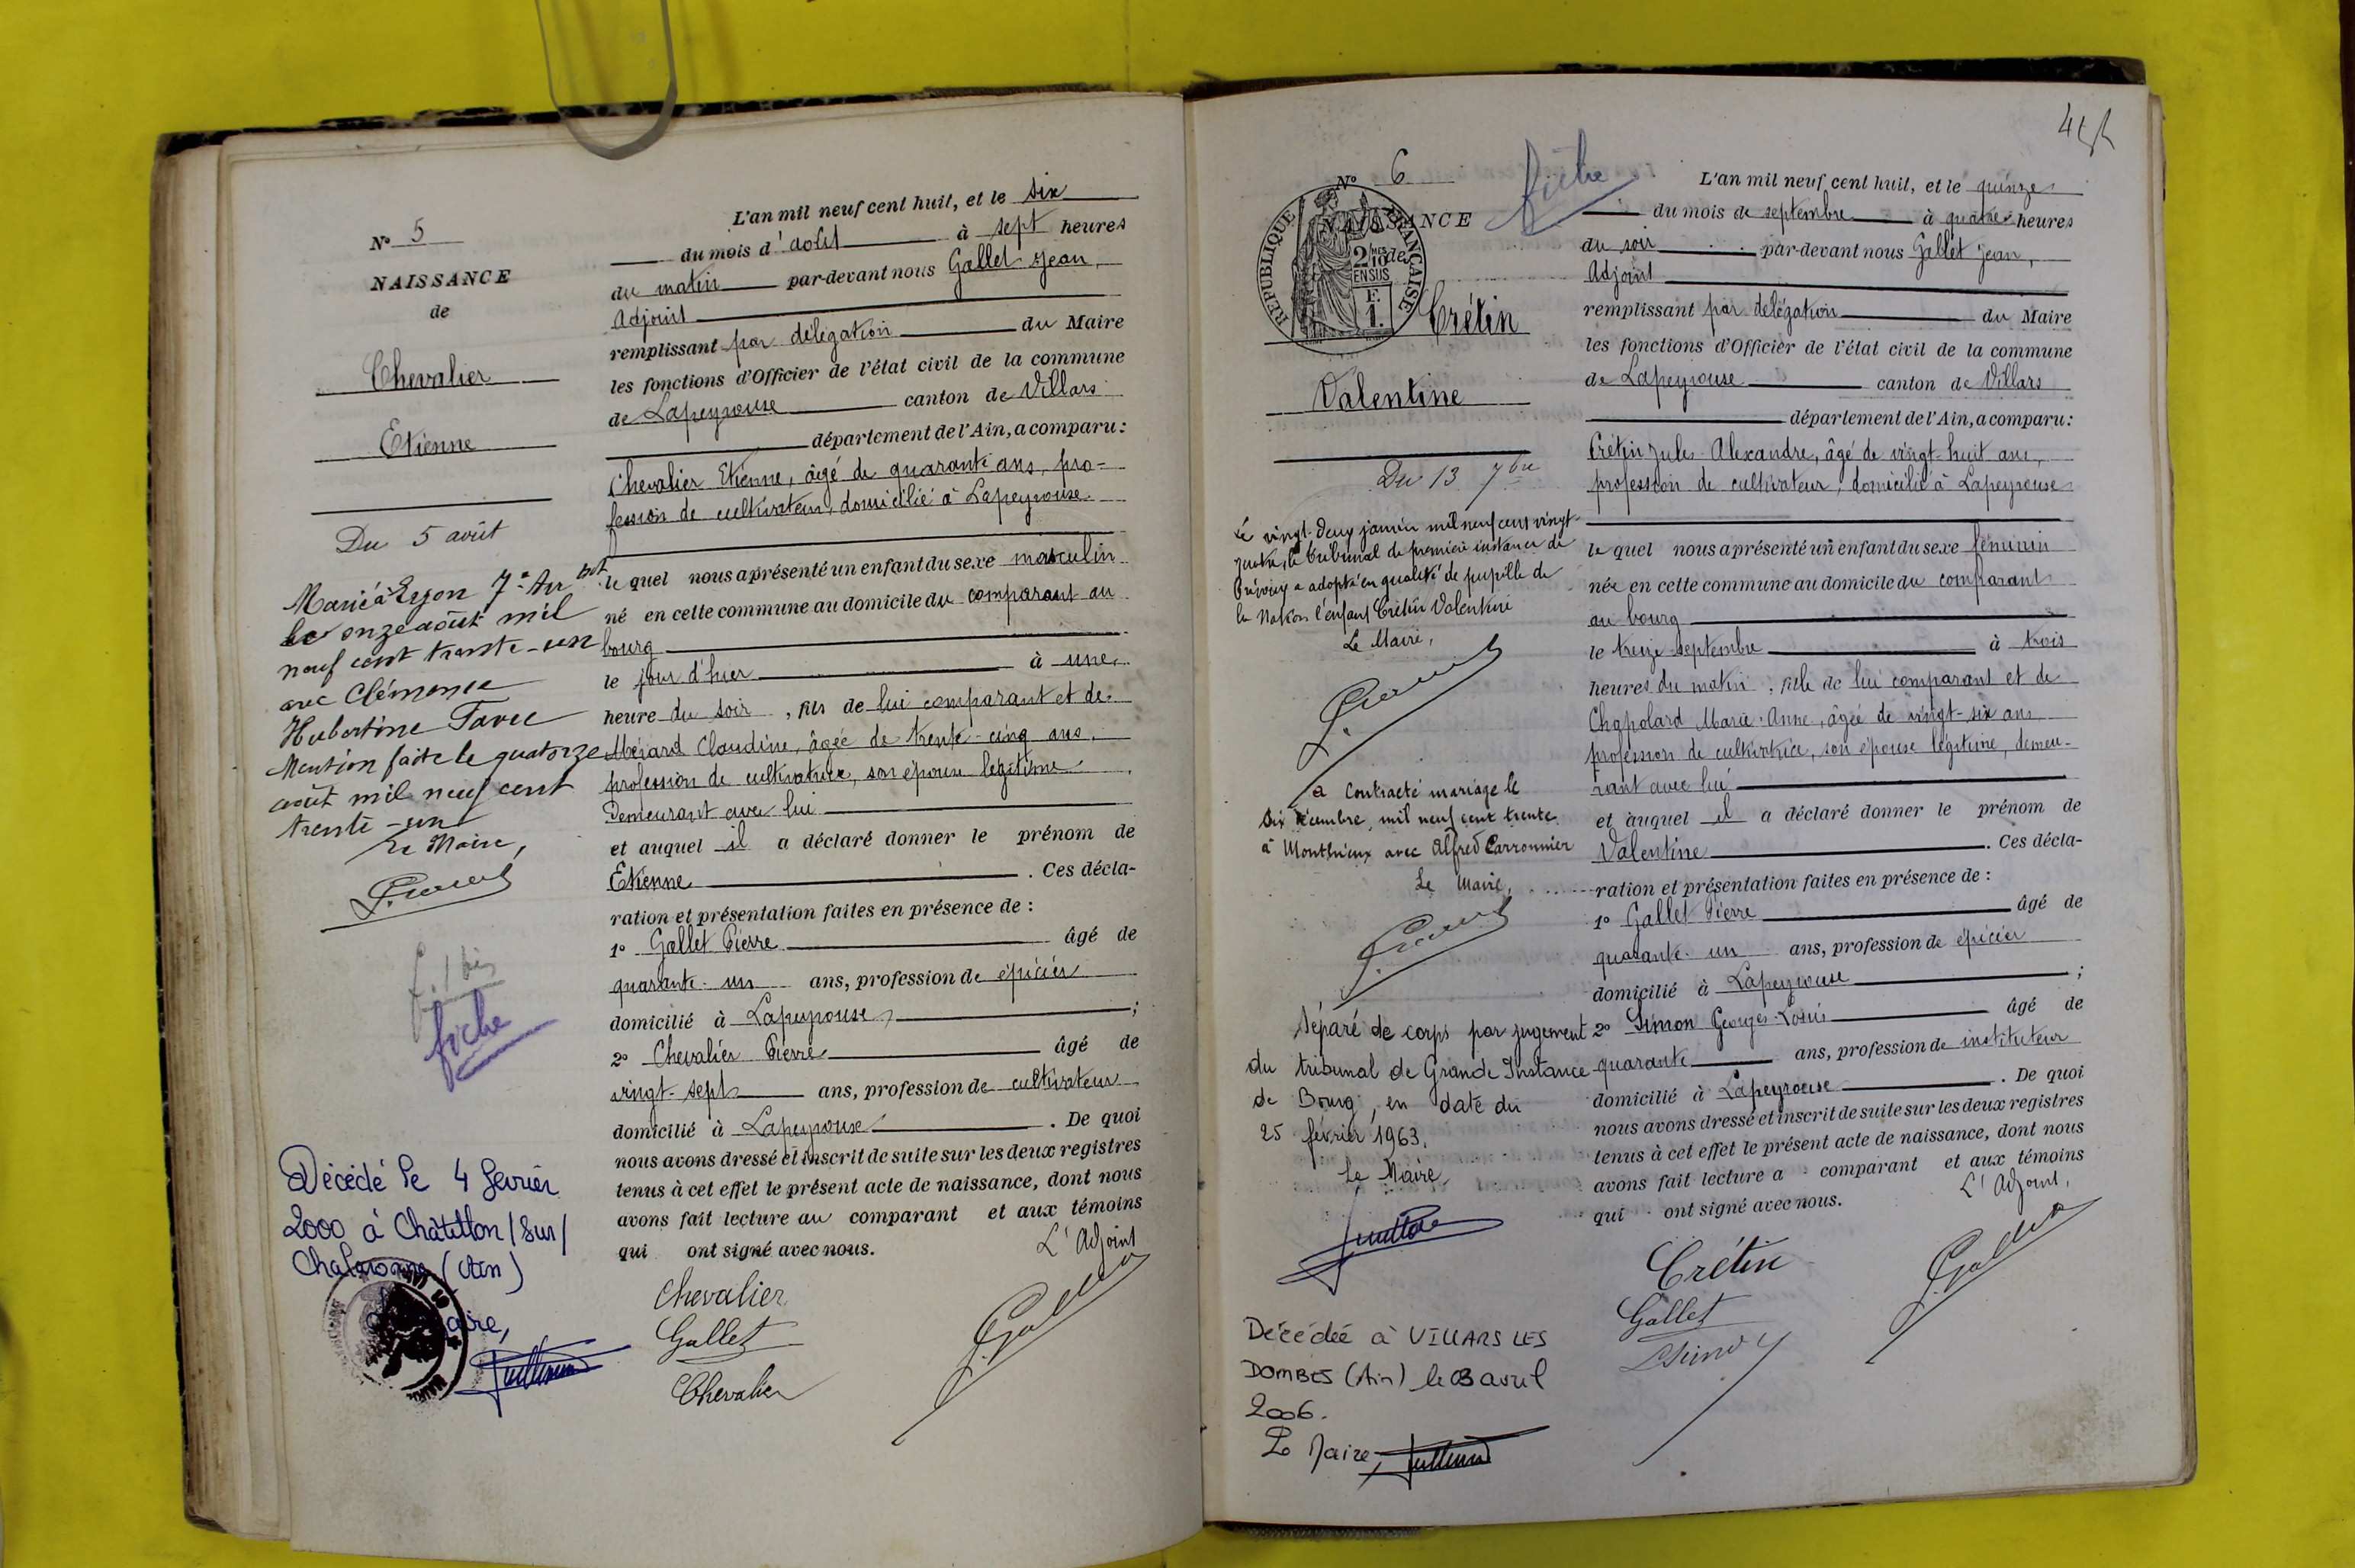 N° 5
NAISSANCE
de
Chevalier
Etienne
Du 5 août
Marié à Lyon 7e Arrdt
le onze août mil
neuf cent trente-un
avec Clémence
Hubertine Favre
Mention faite le quatorze
août mil neuf cent
trente-un
Le Maire,
f. 1 bis
fiche
Décédé le 4 février
2000 à Châtillon/Sur/
Chalaronne (Ain)
L'an mil neuf cent huit, et le six
du mois d'août à sept heures
du matin par-devant nous Gallet Jean,
Adjoint
remplissant par délégation du Maire
les fonctions d'Officier de l'état civil de la commune
de Lapeyrouse canton de Villars
département de l'Ain, a comparu:
Chevalier Etienne, âgé de quarante ans, pro-
fession de cultivateur, domicilié à Lapeyrouse
le quel nous a présenté un enfant du sexe masculin
né en cette commune au domicile du comparant au
bourg
le jour d'hier à une
heure du soir, fils de lui comparant et de
Mérard Claudine, âgée de trente-cinq ans,
profession de cultivatrice, son épouse légitime
Demeurant avec lui
et auquel il a déclaré donner le prénom de
Etienne . Ces décla-
ration et présentation faites en présence de :
1° Gallet Pierre âgé de
quarante-un ans, profession de épicier
domicilié à Lapeyrouse ;
2° Chevalier Pierre âgé de
vingt-sept ans, profession de cultivateur
domicilié à Lapeyrouse . De quoi
nous avons dressé et inscrit de suite sur les deux registres
tenus à cet effet le présent acte de naissance, dont nous
avons fait lecture au comparant et aux témoins
qui ont signé avec nous.
L'Adjoint
Chevalier
Gallet
J. Gallet
Chevalier
N° 6
fiche
NAISSANCE
de
REPUBLIQUE FRANCAISE
2/10 EN SUS
F.
1.
Crétin
Valentine
Du 13 7bre
Le vingt-deux janvier mil neuf cent vingt-
quatre, le Tribunal de première instance de
Trévoux a adopté en qualité de pupille de
la Nation l'enfant Crétin Valentine
Le Maire,
a contracté mariage le
six décembre mil neuf cent trente
à Monthieux avec Alfred Carronnier
Le Maire,
Séparé de corps par jugement
du tribunal de Grande Instance
de Bourg, en date du
25 février 1963.
Le Maire
Décédée à VILLARS LES
DOMBES (Ain) le 03 avril
2006.
Le Maire,
L'an mil neuf cent huit, et le quinze
du mois de septembre à quatre heures
du soir par-devant nous Gallet Jean,
Adjoint
remplissant par délégation du Maire
les fonctions d'Officier de l'état civil de la commune
de Lapeyrouse canton de Villars
département de l'Ain, a comparu:
Crétin Jules Alexandre, âgé de vingt-huit ans,
profession de cultivateur, domicilié à Lapeyrouse
le quel nous a présenté un enfant du sexe féminin
née en cette commune au domicile du comparant
au bourg
le treize septembre à trois
heures du matin, fille de lui comparant et de
Chapolard Marie-Anne, âgée de vingt-six ans
profession de cultivatrice, son épouse légitime, demeu-
rant avec lui
et auquel il a déclaré donner le prénom de
Valentine . Ces décla-
ration et présentation faites en présence de :
1° Gallet Pierre âgé de
quarante-un ans, profession de épicier
domicilié à Lapeyrouse ;
2° Simon Georges Louis âgé de
quarante ans, profession de instituteur
domicilié à Lapeyrouse . De quoi
nous avons dressé et inscrit de suite sur les deux registres
tenus à cet effet le présent acte de naissance, dont nous
avons fait lecture a comparant et aux témoins
qui ont signé avec nous.
L'Adjoint,
Crétin
Gallet
J. Gallet
LSimon